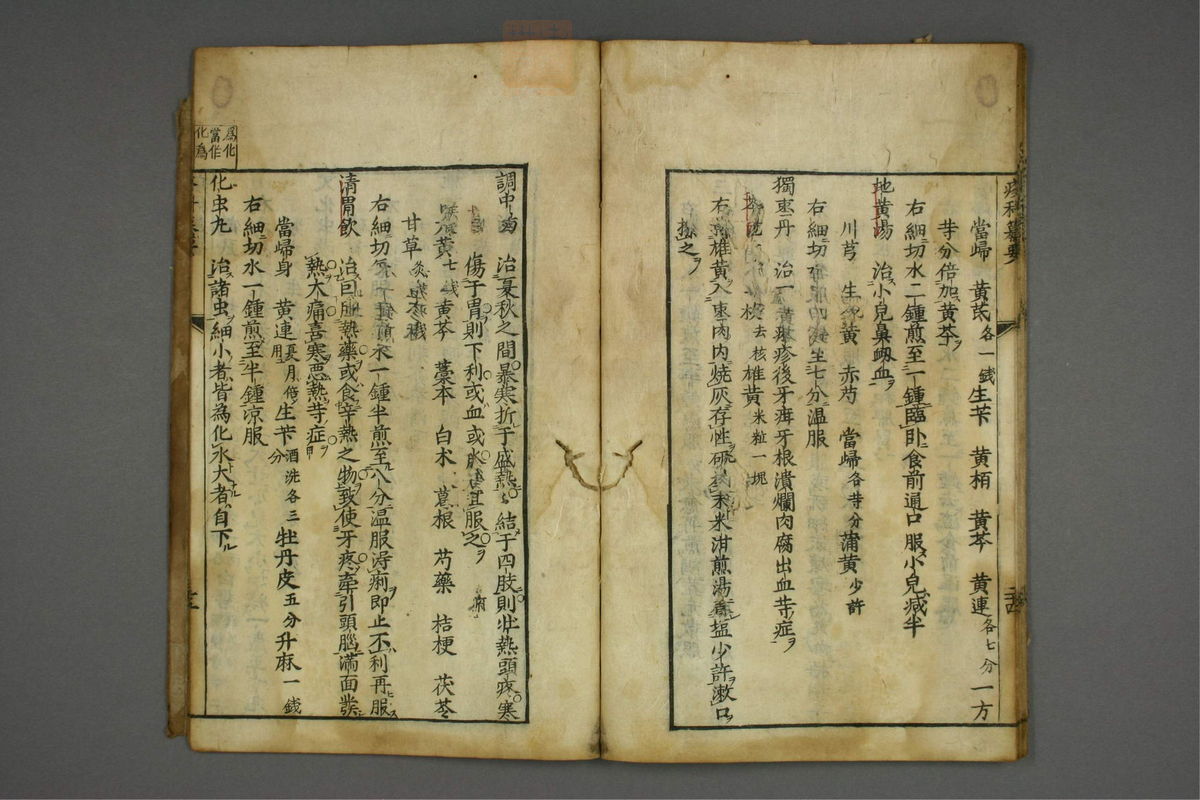 當歸 黃芪各一錢 生芐 黃栢 黃芩 黃連各七分 一方
等分倍加黃芩
右細切水二鍾煎至一鍾臨卧食前通口服小兒减半
地黃湯 治小兒鼻衂血
川芎 生 黃 赤芍 當歸各等分 蒲黃少許
右細切 服 七分温服
獨棗丹 治一 疹後牙 牙根潰爛肉腐出血等症
去核 雄黃米粒一塊
右 雄黃入棗肉内燒灰存性 末米泔煎湯 塩少許漱口
掺之
調中湯 治夏秋之間暴寒折于盛熱〻結于四肢則壯熱頭疼寒
傷于胃則下利或血或水 宜服之
黃七 黃芩 藁本 白朮 葛根 芍藥 桔梗 茯苓
甘草炙
右細切 水一鍾半煎至八分温服淂痢即止不利再服
清胃飲 治 血熱藥或食辛熱之物致使牙疼牽引頭腦滿面發
熱大痛喜寒悪熱等症
當歸身 黃連夏月倍用 生芐酒洗各三分 牡丹皮五分 升麻一錢
右細切水一鍾煎至半鍾凉服
化虫丸 治諸虫細小者皆為化水大者自下
爲化
當作
化為